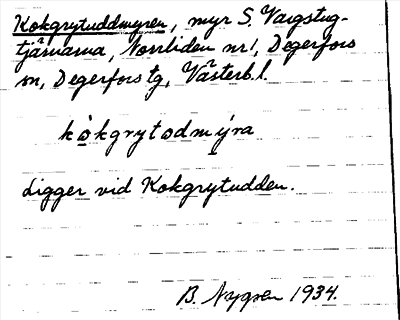 Kokgrytuddmyren, myr S. Vargstug-
tjärnarna, Norrliden nr 1, Degerfors
sn, Degerfors tg, Västerb. l.
kò̱kgrytodmy̱ra
Ligger vid Kokgrytudden.
B. Nygren 1934.